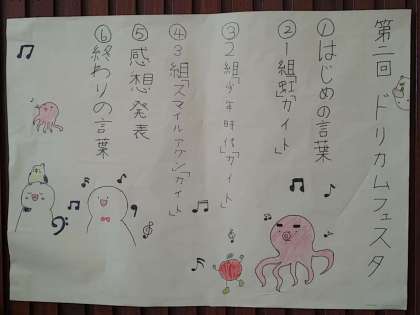 第二回 ドリカムフェスタ
①はじめの言葉
②1組「虹」「ガイト」
③2組「少年時代」「ガイト」
④3組「スマイルアゲン」「ガイト」
⑤感想発表
⑥終わりの言葉